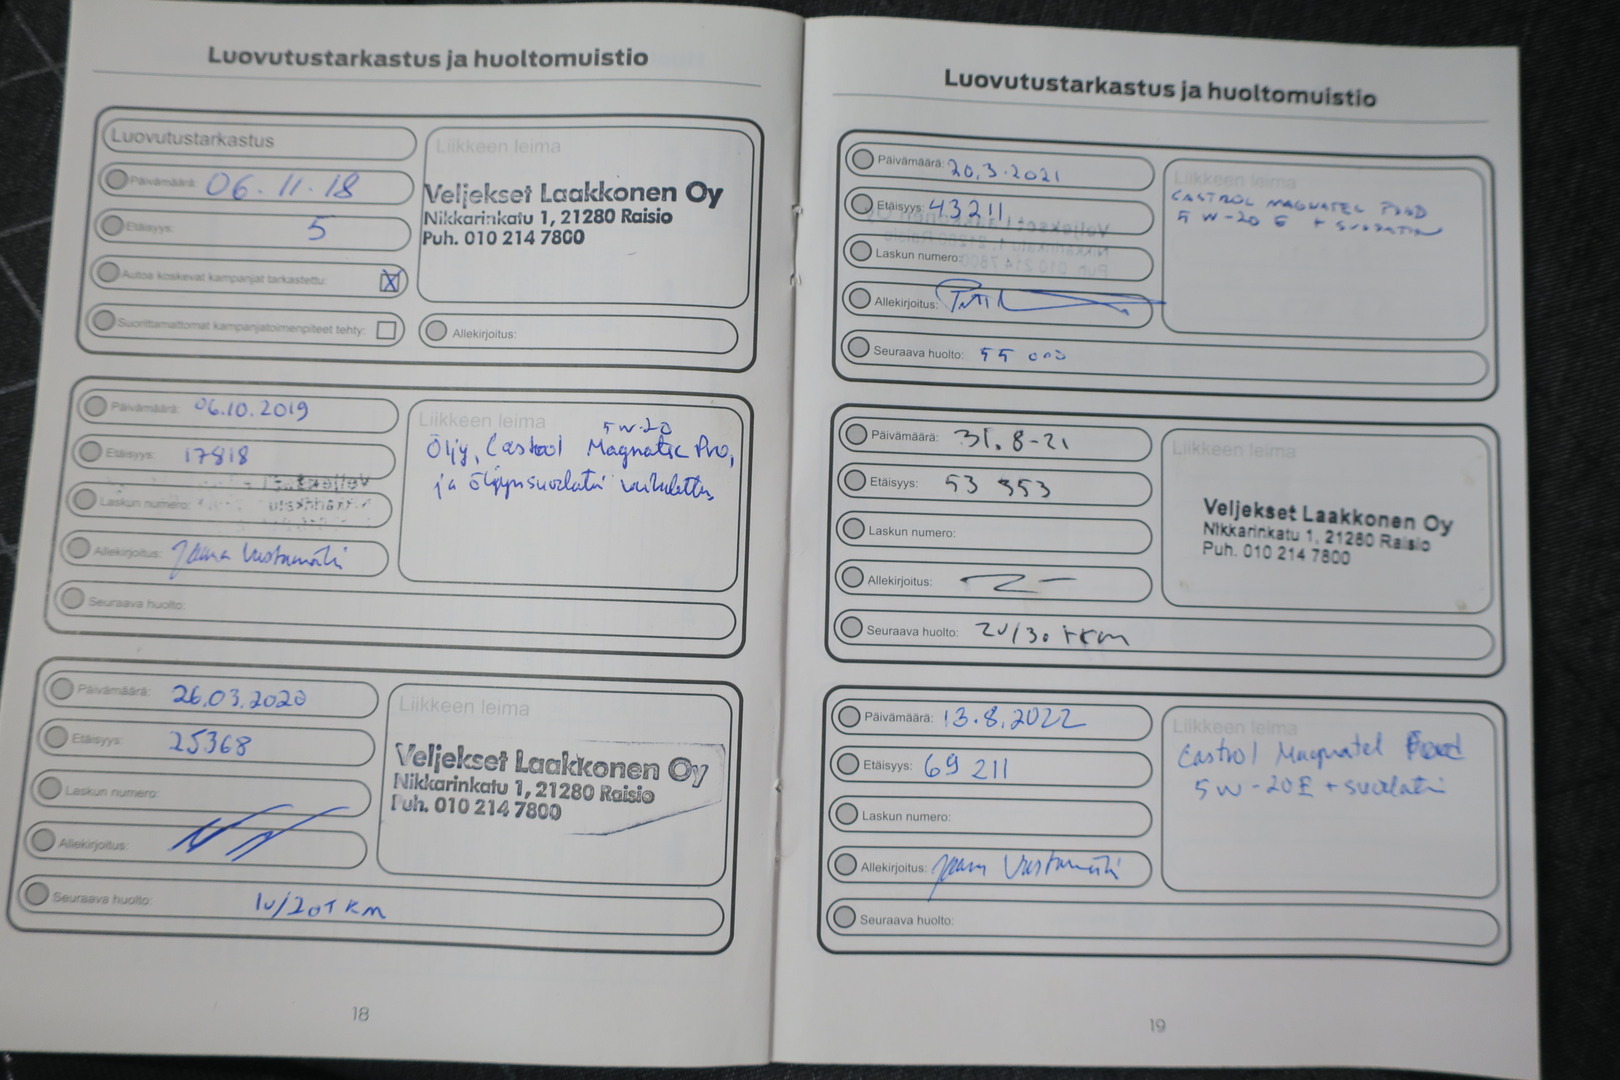 Luovutustarkastus ja huoltomuistio
Luovutustarkastus
Päivämäärä: 06.11.18
Etäisyys: 5
Autoa koskevat kampanjat tarkastettu: X
Suorittamattomat kampanjatoimenpiteet tehty:
Liikkeen leima
Veljekset Laakkonen Oy
Nikkarinkatu 1, 21280 Raisio
Puh. 010 214 7800
Allekirjoitus:
Päivämäärä: 06.10.2019
Etäisyys: 17818
Laskun numero:
Allekirjoitus:
Seuraava huolto:
Liikkeen leima
5W-20
Öljy, Castrol Magnatec Pro,
ja öljynsuodatin vaihdettu
Päivämäärä: 26.03.2020
Etäisyys: 25368
Laskun numero:
Allekirjoitus:
Seuraava huolto: 1v/20TKM
Liikkeen leima
Veljekset Laakkonen Oy
Nikkarinkatu 1, 21280 Raisio
Puh. 010 214 7800
18
Luovutustarkastus ja huoltomuistio
Päivämäärä: 20.3.2021
Etäisyys: 43211
Laskun numero:
Allekirjoitus:
Seuraava huolto: 55 000
Liikkeen leima
CASTROL MAGNATEC
5W-20 E + SUODATIN
Päivämäärä: 31.8-21
Etäisyys: 53 353
Laskun numero:
Allekirjoitus:
Seuraava huolto: 2v/30 tkm
Liikkeen leima
Veljekset Laakkonen Oy
Nikkarinkatu 1, 21280 Raisio
Puh. 010 214 7800
Päivämäärä: 13.8.2022
Etäisyys: 69 211
Laskun numero:
Allekirjoitus:
Seuraava huolto:
Liikkeen leima
Castrol Magnatel
5W-20E + suodatin
19